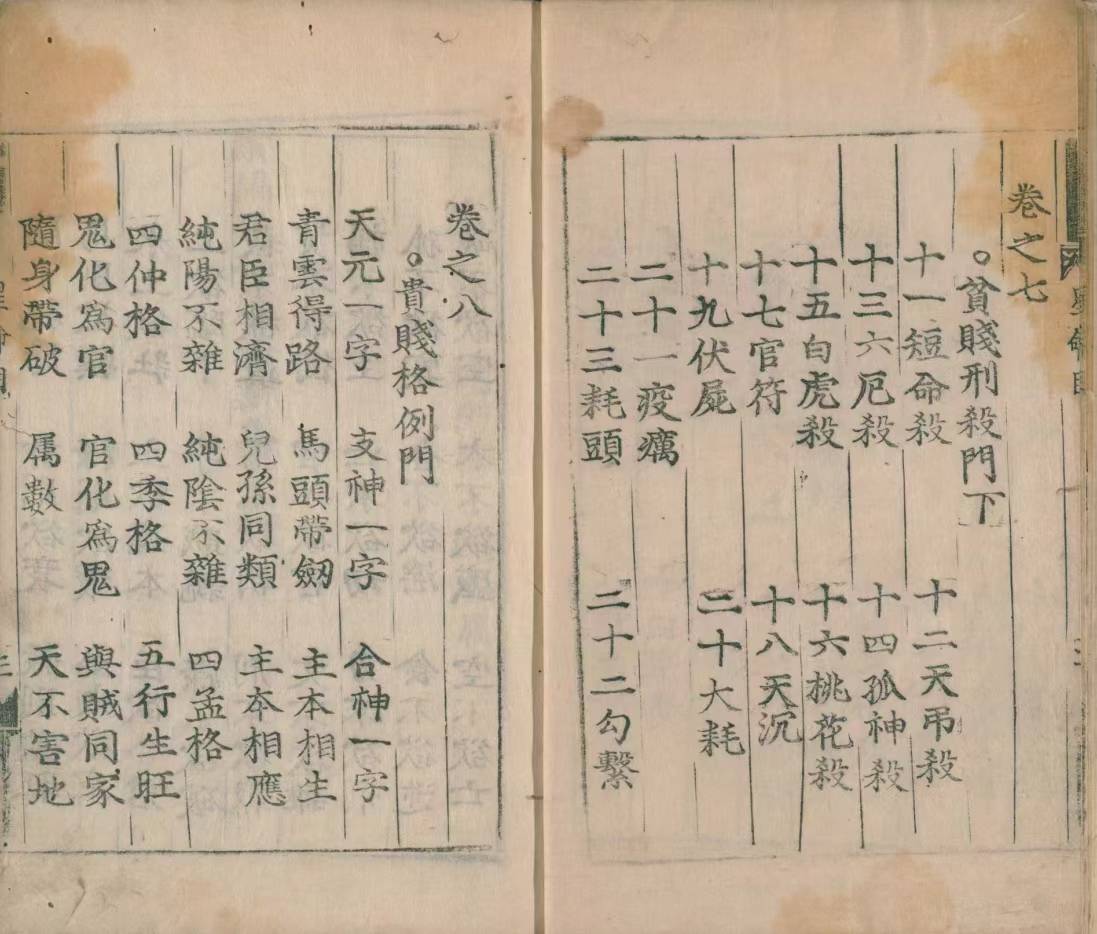 卷之七
○貧賤刑殺門下
十一短命殺 十二天弔殺
十三六厄殺 十四孤神殺
十五白虎殺 十六桃花殺
十七官符 十八天沉
十九伏屍 二十大耗
二十一疫癘
二十三耗頭 二十二勾繫
卷之八
○貴賤格例門
天元一字 支神一字 合神一字
青雲得路 馬頭帶劒 主本相生
君臣相濟 兒孫同類 主本相應
純陽不雜 純陰不雜 四孟格
四仲格 四季格 五行生旺
鬼化爲官 官化爲鬼 與賊同家
隨身帶破 属數 天不害地